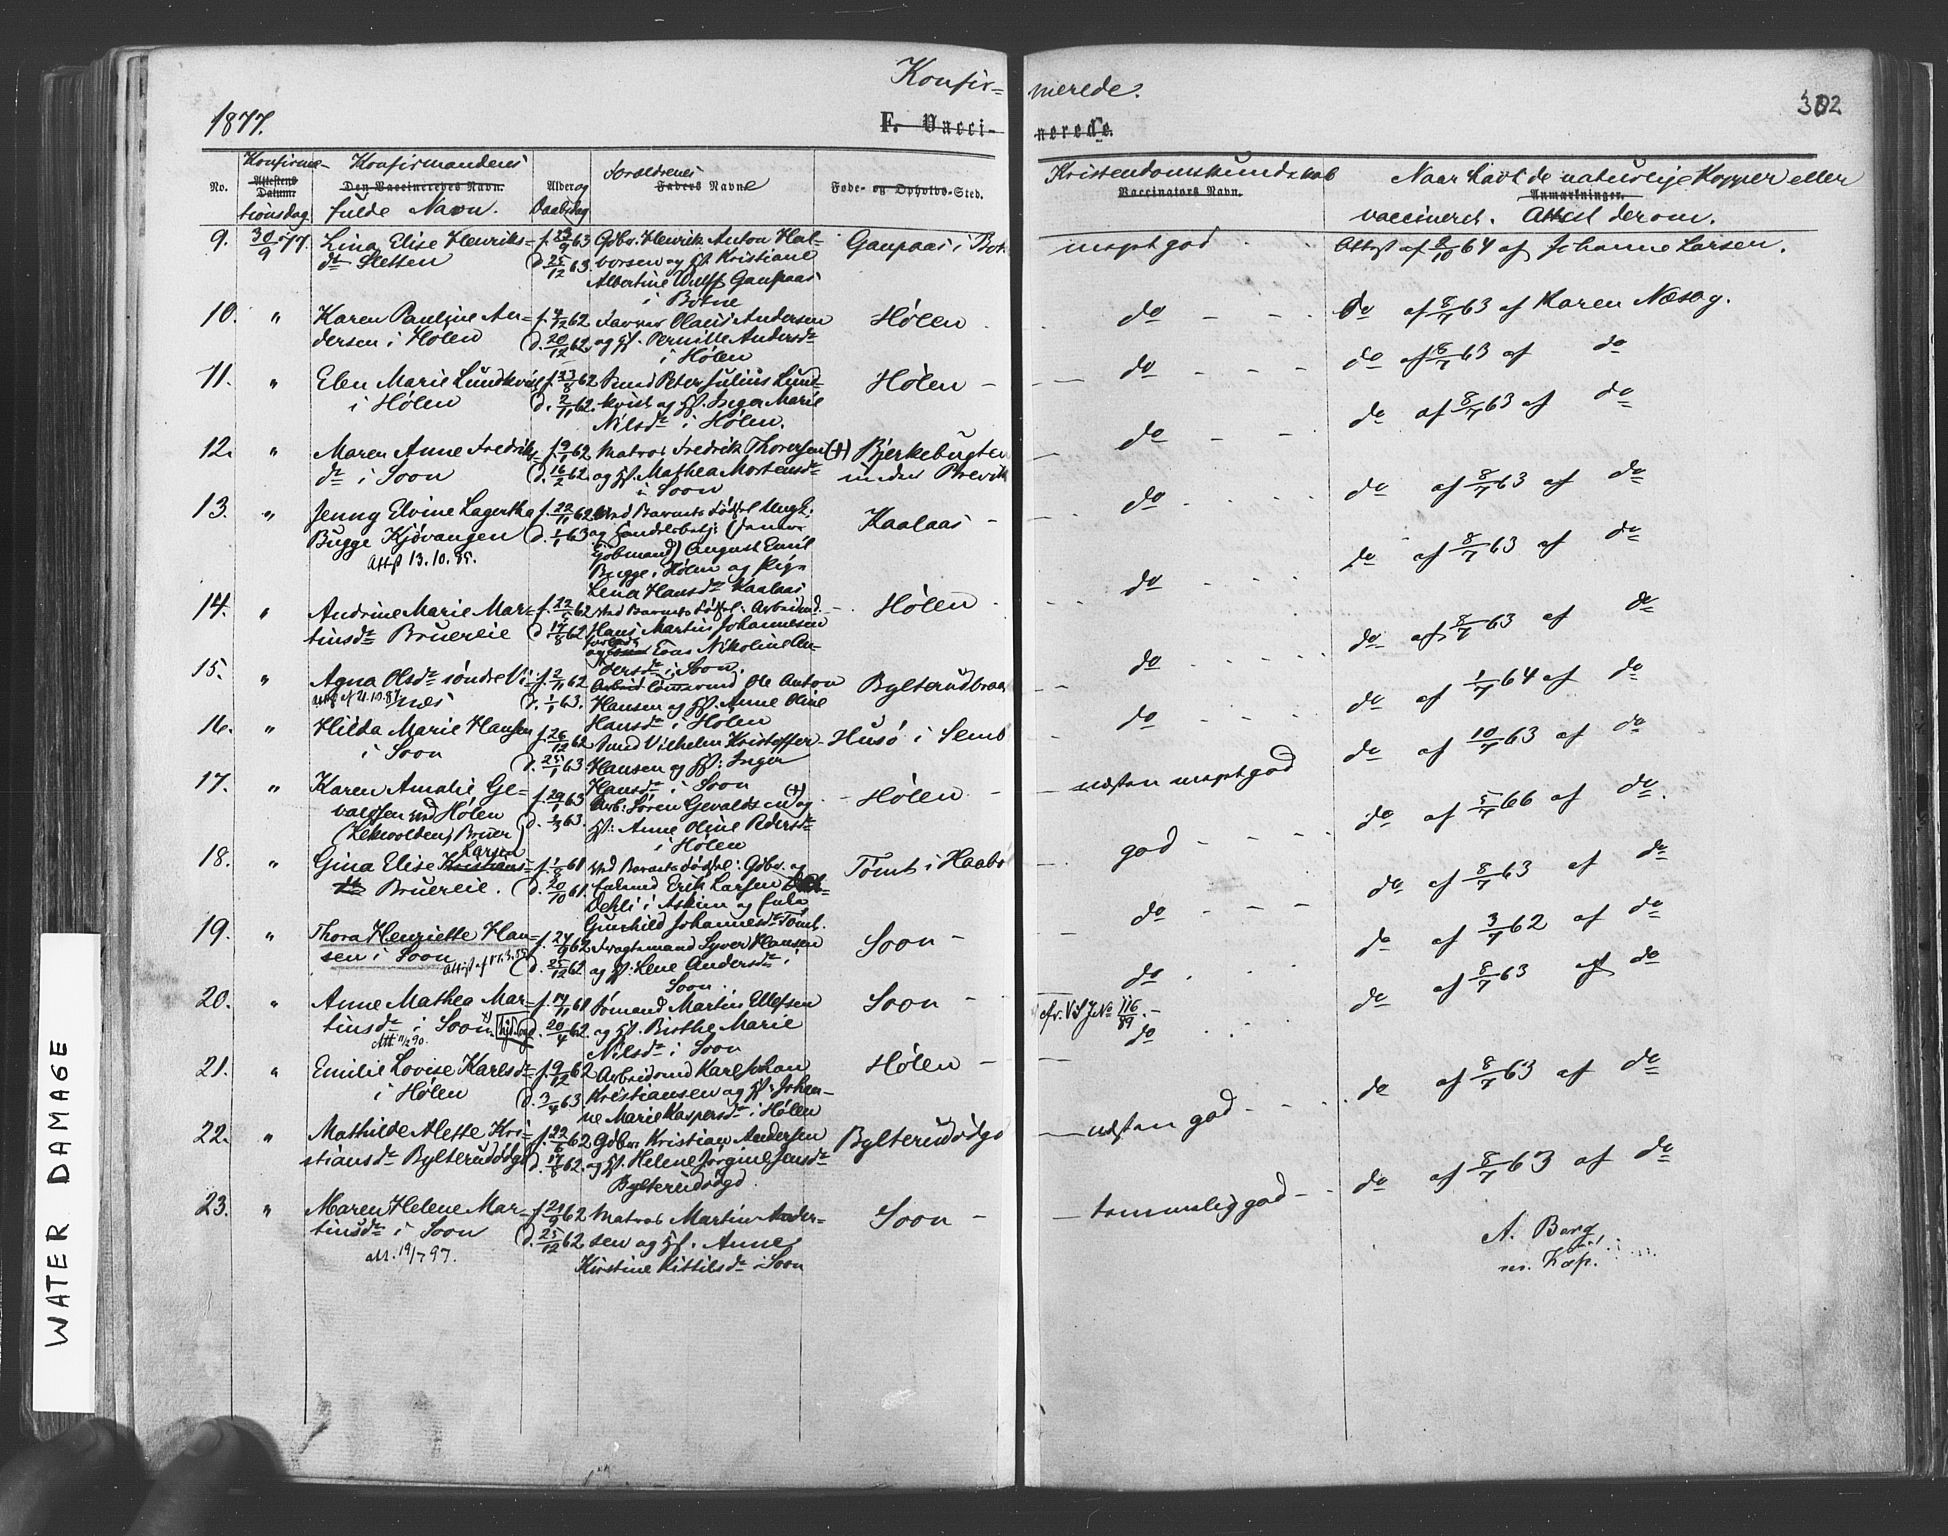 Konfir=
merede.
302
1877.
F. Vacci-
nerede.
No.
Konfirma-
Attestens Datum.
tionsdag
Konfirmandens
Den Vaccineredes Navn.
fulde Navn.
Alder og
Daabsdag
Forældrenes
Faders Navne
Føde- og Opholds-Sted.
Kristendomskundskab
Vaccinators Navn.
Naar havt de naturlige Kopper eller
Anmærkninger.
vaccineret. Attest derom.
9. 30/9 77. Lina Elise Henriks- f. 23/9 63 Gdbr. Henrik Anton Hal- Gaupaas i Bot
dtr Sletten d. 25/12 63. vorsen og Hst. Kristiane
Albertine Wulff Gaupaas
i Botne
meget god Attest af 9/10 64 af Johanne Larsen.
10. " Karen Pauline An- f. 4/12 62 Olaus Andersen Hølen
dersen i Hølen d. 20/12 62 og Hst. Pernille Andersdr
i Hølen
do do af 8/7 63 af Karen Næsøg.
11. " Elen Marie Lundkvist f. 23/8 62 Smed Peter Julius Lund- Hølen
i Hølen d. 2/11 62. kvist og Hst. Inger Marie
Nilsdr i Hølen.
do do af 8/7 63 af do
12. " Maren Anne Fredriks- f. 9/1 62 Matros Fredrik Thoresen (+) Bjerkebugten
dr i Soon d. 16/2 62. og Hst. Mathea Mortensdr under Brevik
i Soon
do do af 8/7 63 af do
13. " Jenny Elvine Lagertha f. 22/11 62 ved Barnets Fødsel Ungk. Kaalaas
Bugge Kjøvangen d. 1/1 63
Attest 13.10.85. August Emil
Bugge i Hølen og Pige
Lena Hansdr Kaalaas
do do af 8/7 63 af do
14. " Andrine Marie Mar- ved Barnets Fødsel: Arbeidsmd. Hølen
tinsdr Bruereie d. 17/8 62 Hans Martin Johannesen
Eva Nikoline An-
dersdr i Soon.
do do af 8/7 63 af do
15. " Agna Olsdr søndre Vi- f. 2/11 62 Ole Anton Bylterudbraa
nes d. 1/1 63. Hansen og Hst. Anne Oline
Hansdr i Hølen
do do af 8/7 63 af do
16. " Hilda Marie Hansen f. 26/12 62 Smed Vilhelm Kristoffer Husø i Semb
i Soon d. 25/1 63 Hansen og Hst. Inger
Hansdr i Soon
do do af 1/7 64 af do
17. " Karen Amalie Ge- f. 29/1 63 Arb: Søren Gevaldsen (+) og Hølen
valdsen ved Hølen d. 1/3 63. Hst: Anne Oline Pedersdr
i Hølen
næsten meget god do af 10/7 63 af do
18. " Gina Elise Larsen f. 1/8 61 ved Barnets Fødsel: Gdbr. og Tomt i Haabø
Bruereie. d. 20/10 61. Erik Larsen
Dehli i Askim og Enke
Gunhild Johannesdr Tomt.
god do af 5/7 66 af do.
19. " Thora Henriette Han- f. 24/9 62 Fragtemand Syver Hansen Soon
sen i Soon d. 25/12 62 og Hst: Lene Andersdr i
Soon.
do do af 8/7 63 af do
20. " Anne Mathea Mar- f. 17/11 61 Sømand Martin Ellefsen Soon
tinsdr i Soon d. 20/4 62. og Hst. Birthe Marie
Att 11/2 90. Nilsdr i Soon
cfr. V S J No 116/89. do do af 3/7 62 af do
21. " Emilie Lovise Karlsdr f. 9/12 62 Arbeidsmd Karl Johan Hølen
i Hølen d. 3/4 63 Kristiansen og Hst: Johan-
ne Marie Kaspersdr i Hølen
do af 8/7 63 af do
22. " Mathilde Alette Kri- f. 22/6 62 Gdbr. Kristian Andersen Bylterudødgd
stiansdr Bylterudødgd d. 17/8 62. og Hst. Helene Jørgine Jensdr
Bylterudødgd.
næsten god do af 8/7 63 af do
23. " Maren Helene Mar- f. 21/9 62 Matros Martin Ander- Soon
tinsdr i Soon d. 25/12 62. sen og Hst. Anne
att. 19/7 97. Kirstine Kittilsdr i Soon
temmelig god do af 8/7 63 af do
A. Berg
m. Kap.
WATER DAMAGE